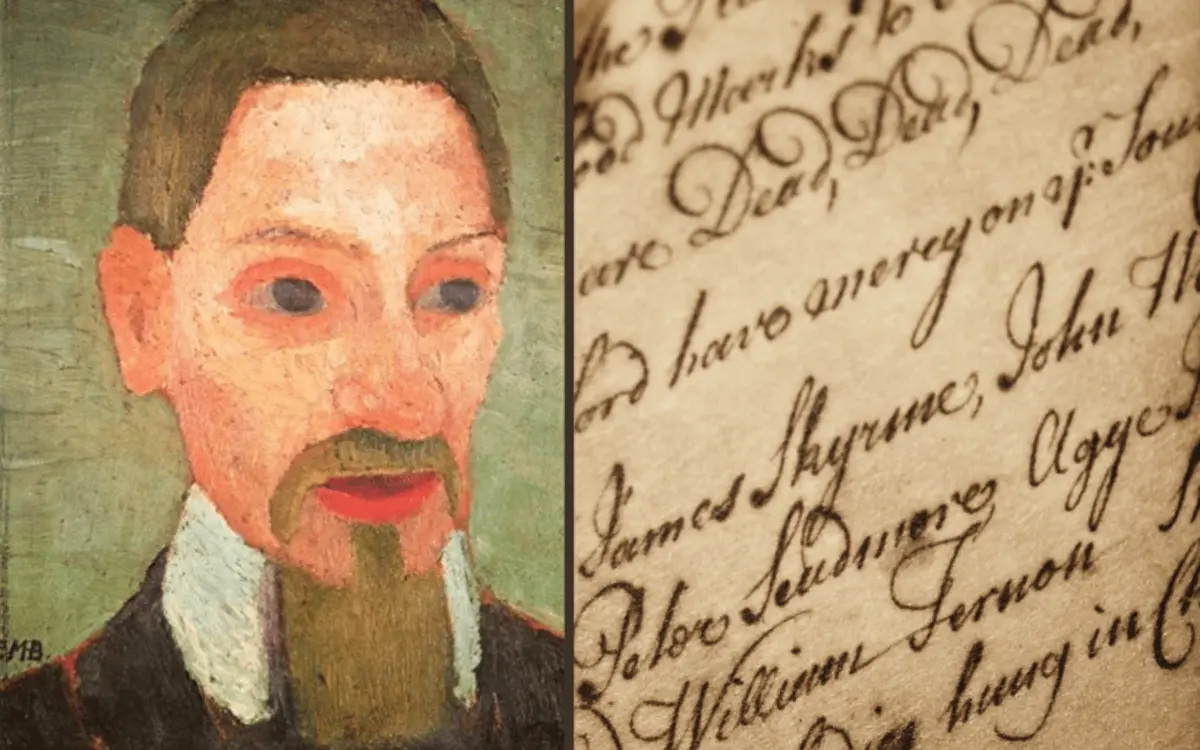 PMB.
the
Marks to
are Dead, Dead, Dead,
lord have mercy on yr. Soul
James Skyrme, John
Peter Scudmore Agge
William Fernon
hung in